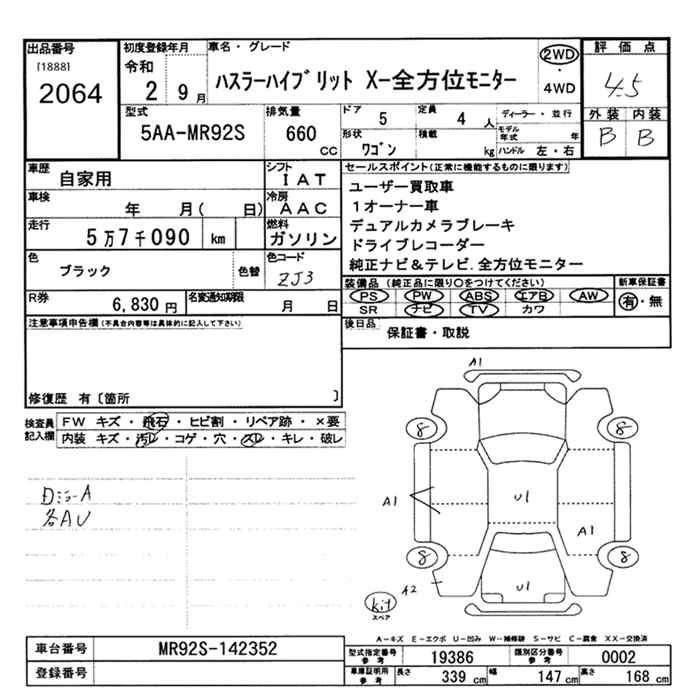 出品番号
[1888]
2064
初度登録年月
令和
2 9月
車名・グレード
ハスラーハイブリット X-全方位モニター
2WD
・
4WD
評価点
4.5
外装 内装
B B
型式
5AA-MR92S
排気量
660
CC
ドア
5
定員
4人
ディーラー・並行
形状
ワゴン
積載
kg
モデル年式 年
ハンドル 左・右
車歴
自家用
シフト
IAT
車検
年 月( 日)
冷房
AAC
走行
5万7千090 km
燃料
ガソリン
色
ブラック
色替
色コード
ZJ3
R券
6,830円
名変通知期限
月 日
セールスポイント(正常に機能するものに限ります)
ユーザー買取車
1オーナー車
デュアルカメラブレーキ
ドライブレコーダー
純正ナビ&テレビ.全方位モニター
装備品(純正品に限り○をつけてください)
PS PW ABS エアB AW
SR ナビ TV カワ
新車保証書
有・無
後日品
保証書・取説
注意事項申告欄(不具合内容等は具体的に記入して下さい)
修復歴 有〔箇所 〕
検査員記入欄
FW キズ・飛石・ヒビ割・リペア跡・×要
内装 キズ・汚レ・コゲ・穴・スレ・キレ・破レ
各AU
A1
8
8
A1
U1
A1
8
8
A2
U1
kit
スペア
A-キズ E-エクボ U-凹み W-補修跡 S-サビ C-腐食 XX-交換済
車台番号
MR92S-142352
登録番号
型式指定番号
参考
19386
類別区分番号
参考
0002
車庫証明用
参考
長さ
339 cm
幅
147 cm
高さ
168 cm